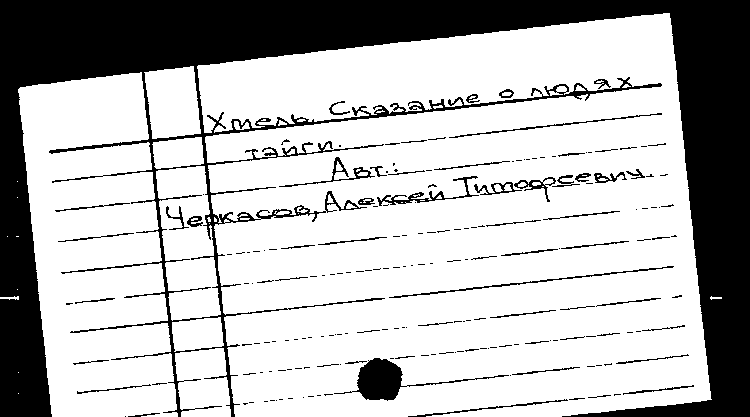 Хмель. Сказание о людях
тайги.
Авт.:
Черкасов, Алексей Тимофеевич.